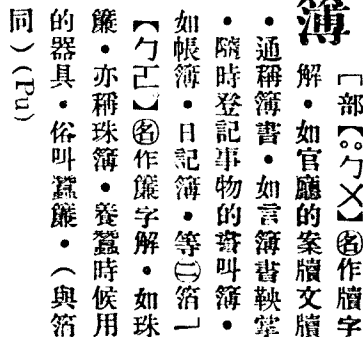 簿
〔部【°°ㄅㄨ】㊔作牘字
解·如官廳的案牘文牘
·通稱簿書·如言簿書鞅掌
·隨時登記事物的書叫簿·
如帳簿·日記簿·等㊁箔﹁
【ㄅㄛ】㊔作簾字解·如珠
簾·亦稱珠簿·養蠶時候用
的器具·俗叫蠶簾·（與箔
同）（Pu）